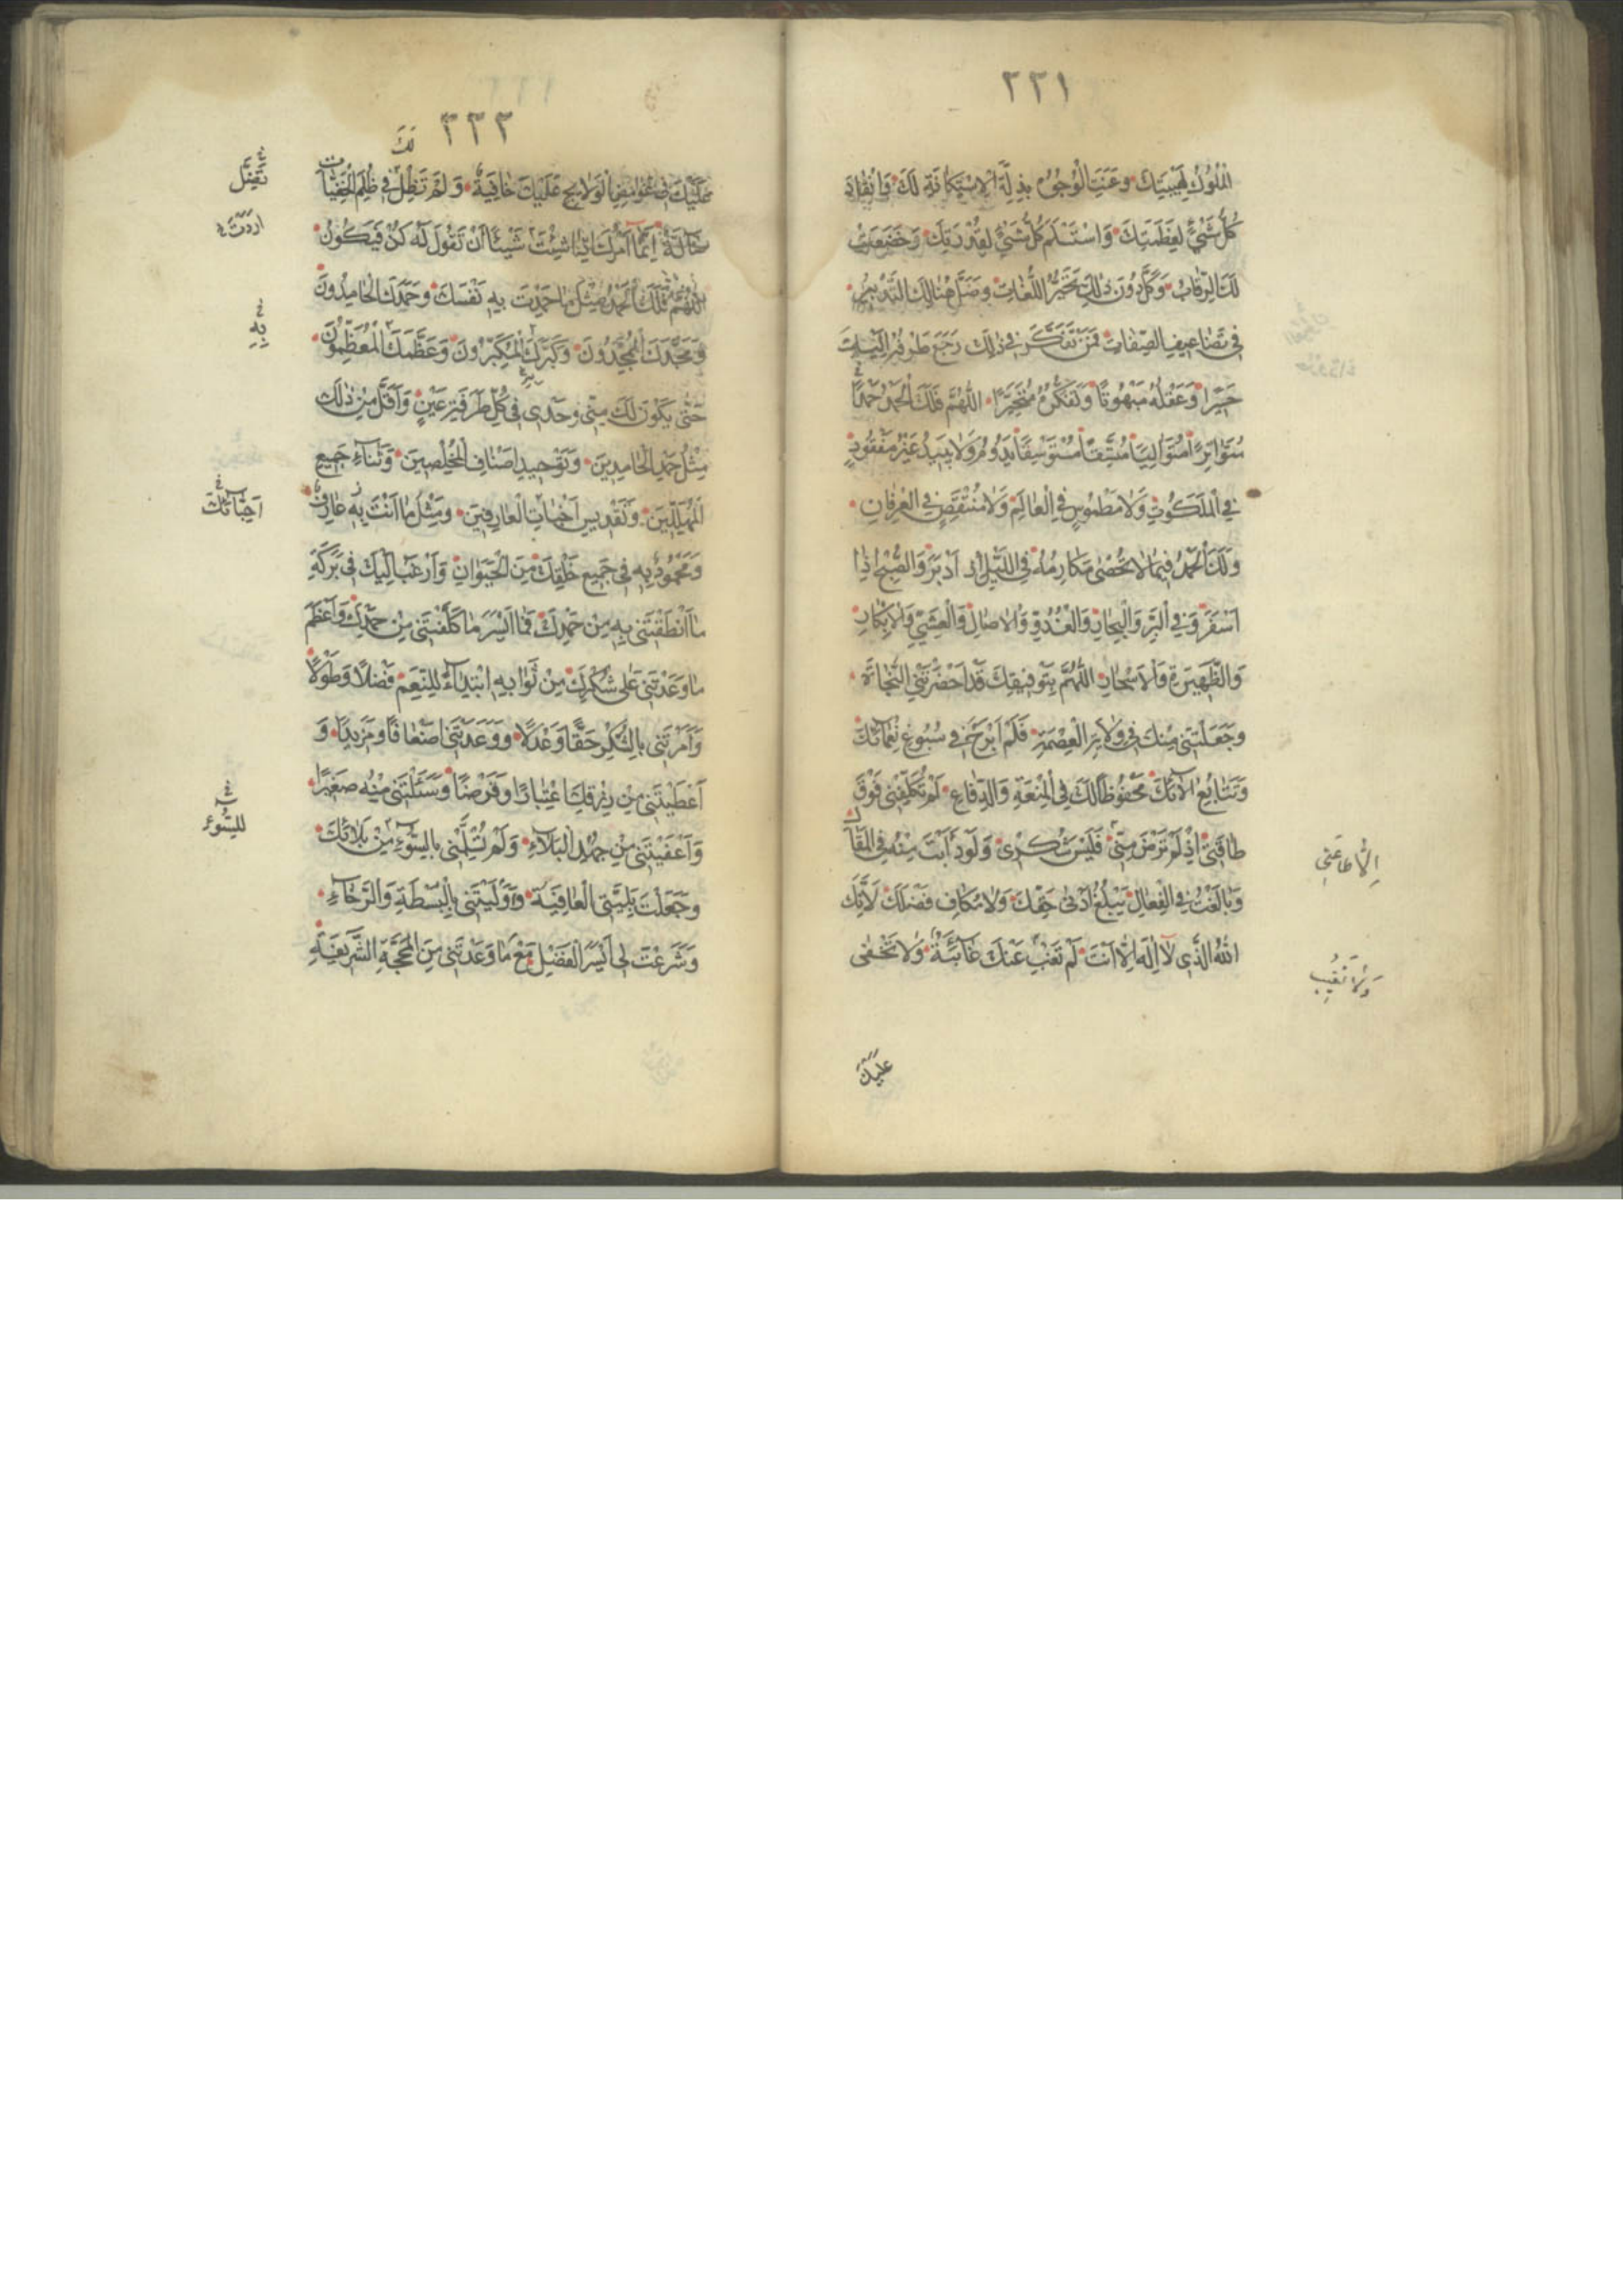 ٢٢١
الْمُلُوكُ لِهَيْبَتِكَ وَعَنَتِ الْوُجُوهُ بِذِلَّةِ الْاِسْتِكَانَةِ لَكَ وَانْقَادَ
كُلُّ شَيْءٍ لِعَظَمَتِكَ وَاسْتَسْلَمَ كُلُّ شَيْءٍ لِقُدْرَتِكَ وَخَضَعَتْ
لَكَ الرِّقَابُ وَكَلَّ دُونَ ذٰلِكَ تَحْبِيرُ اللُّغَاتِ وَضَلَّ هُنَالِكَ التَّدْبِيرُ
فِي تَضَاعِيفِ الصِّفَاتِ فَمَنْ تَفَكَّرَ فِي ذٰلِكَ رَجَعَ طَرْفُهُ اِلَيْهِ
حَسِيرًا وَعَقْلُهُ مَبْهُوتًا وَتَفَكُّرُهُ مُتَحَيِّرًا اَللّٰهُمَّ فَلَكَ الْحَمْدُ حَمْدًا
مُتَوَاتِرًا مُتَوَالِيًا مُتَّسِقًا مُسْتَوْسِقًا يَدُومُ وَلَا يَبِيدُ غَيْرَ مَفْقُودٍ
فِي الْمَلَكُوتِ وَلَا مَطْمُوسٍ فِي الْعَالَمِ وَلَا مُنْتَقَصٍ فِي الْعِرْفَانِ
وَلَكَ الْحَمْدُ فِيمَا لَا تُحْصٰى مَكَارِمُهُ فِي اللَّيْلِ اِذْ اَدْبَرَ وَالصُّبْحِ اِذَا
اَسْفَرَ وَفِي الْبَرِّ وَالْبِحَارِ وَالْغُدُوِّ وَالْاٰصَالِ وَالْعَشِيِّ وَالْاِبْكَارِ
وَالظَّهِيرَةِ وَالْاَسْحَارِ اَللّٰهُمَّ بِتَوْفِيقِكَ قَدْ اَحْضَرْتَنِي النَّجَاةَ
وَجَعَلْتَنِي مِنْكَ فِي وَلَايَةِ الْعِصْمَةِ فَلَمْ اَبْرَحْ فِي سُبُوغِ نَعْمَائِكَ
وَتَتَابُعِ اٰلَائِكَ مَحْفُوظًا لَكَ فِي الْمَنَعَةِ وَالدِّفَاعِ لَمْ تُكَلِّفْنِي فَوْقَ
طَاقَتِي اِذْ لَمْ تَرْضَ مِنِّي فَلَيْسَ شُكْرِي وَلَوْ دَأَبْتُ مِنْهُ فِي الْمَقَالِ
اِلَّا طَاعَتِي
وَبَالَغْتُ فِي الْفِعَالِ يَبْلُغُ اَدْنٰى حَقِّكَ وَلَا مُكَافٍ فَضْلَكَ لِاَنَّكَ
اللّٰهُ الَّذِي لَا اِلٰهَ اِلَّا اَنْتَ لَمْ تَغِبْ عَنْكَ غَائِبَةٌ وَلَا تَخْفٰى
وَلَا تَغِيبُ
عَلَيْكَ
٢٢٢
لَكَ
عَلَيْكَ فِي غَوَامِضِ الْوَلَائِجِ عَلَيْكَ خَافِيَةٌ وَلَمْ تَضِلَّ فِي ظُلَمِ الْخَفِيَّاتِ
تَضِلَّ
ضَالَّةٌ اِنَّمَا اَمْرُكَ اِذَا شِئْتَ شَيْئًا اَنْ تَقُولَ لَهُ كُنْ فَيَكُونُ
اَرَدْتَ
اَللّٰهُمَّ فَلَكَ الْحَمْدُ مِثْلَ مَا حَمِدْتَ بِهِ نَفْسَكَ وَحَمِدَكَ الْحَامِدُونَ
بِهِ
وَمَجَّدَكَ الْمُمَجِّدُونَ وَكَبَّرَكَ الْمُكَبِّرُونَ وَعَظَّمَكَ الْمُعَظِّمُونَ
حَتّٰى يَكُونَ لَكَ مِنِّي وَحْدِي فِي كُلِّ طَرْفَةِ عَيْنٍ وَاَقَلَّ مِنْ ذٰلِكَ
مِثْلُ حَمْدِ الْحَامِدِينَ وَتَوْحِيدِ اَصْنَافِ الْمُخْلِصِينَ وَثَنَاءِ جَمِيعِ
الْمُهَلِّلِينَ وَتَقْدِيسِ الْعَارِفِينَ وَمِثْلُ مَا اَنْتَ بِهِ عَارِفٌ
اَحِبَّائِكَ
وَمَحْمُودٌ بِهِ فِي جَمِيعِ خَلْقِكَ مِنَ الْحَيَوَانِ وَاَرْغَبُ اِلَيْكَ فِي بَرَكَةِ
مَا اَنْطَقْتَنِي بِهِ مِنْ حَمْدِكَ فَمَا اَيْسَرَ مَا كَلَّفْتَنِي مِنْ حَمْدِكَ وَاَعْظَمَ
مَا وَعَدْتَنِي عَلٰى شُكْرِكَ مِنْ ثَوَابِهِ ابْتِدَاءً لِلنِّعَمِ فَضْلًا وَطَوْلًا
وَاَمَرْتَنِي بِالشُّكْرِ حَقًّا وَعَدْلًا وَوَعَدْتَنِي اَضْعَافًا وَمَزِيدًا وَ
اَعْطَيْتَنِي مِنْ رِزْقِكَ اعْتِبَارًا وَفَرْضًا وَسَئَلْتَنِي مِنْهُ صَغِيرًا
وَاَعْفَيْتَنِي مِنْ جُهْدِ الْبَلَاءِ وَلَمْ تُسَلِّمْنِي بِالسُّوْءِ مِنْ بَلَائِكَ
لِلسُّوْءِ
وَجَعَلْتَ بَلِيَّتِي الْعَافِيَةَ وَاَوْلَيْتَنِي بِالْبَسْطَةِ وَالرَّخَاءِ
وَشَرَعْتَ لِي اَيْسَرَ الْفَضْلِ مَعَ مَا وَعَدْتَنِي مِنَ الْمَحَجَّةِ الشَّرِيفَةِ